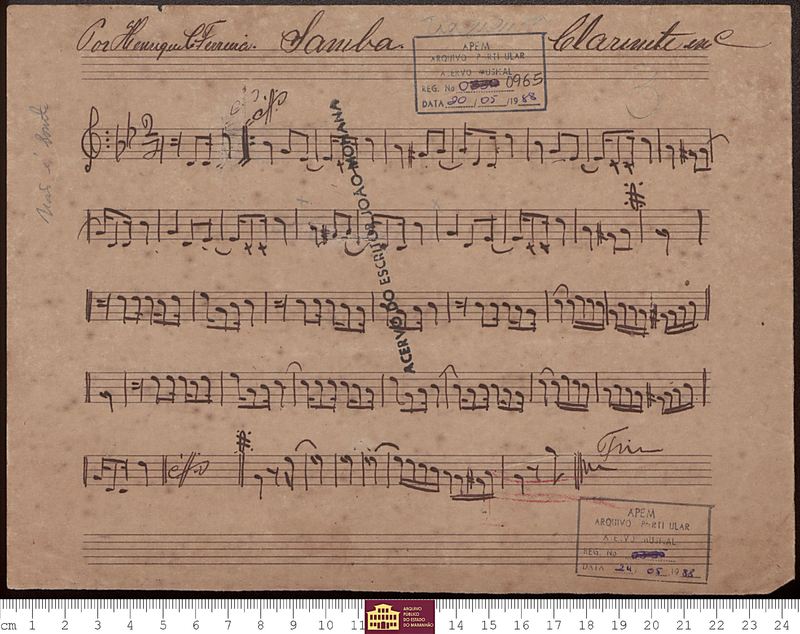 Por Henrique C. Ferreira. Samba. Clarinete en C
APEM
ARQUIVO PARTICULAR
ACERVO MUSICAL
REG. No 0965
DATA 20 / 05 / 1988
ACERVO DO ESCRITOR JOAO MOHANA
Fim
APEM
ARQUIVO PARTICULAR
ACERVO MUSICAL
REG. No
DATA 24 / 05 / 1988
cm 1 2 3 4 5 6 7 8 9 10 11 14 15 16 17 18 19 20 21 22 23 24
ARQUIVO
PÚBLICO
DO ESTADO
DO MARANHÃO